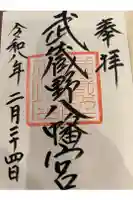 奉拝
武蔵野八幡宮
令和八年二月二十四日